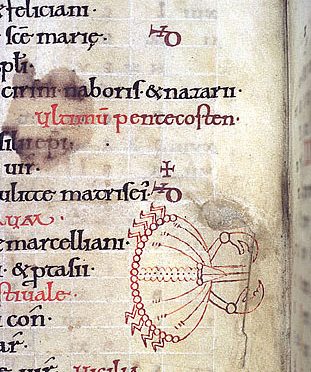 & feliciani ·
sc̄e marię · HO
pl̄i
cirini naboris · & nazarii ·
Vltimū pentecosten ·
silii epi
uir · +
ulitte matris ei · HO
e martelliani ·
i · & ptasii ·
stiuale ·
i con̄ ·